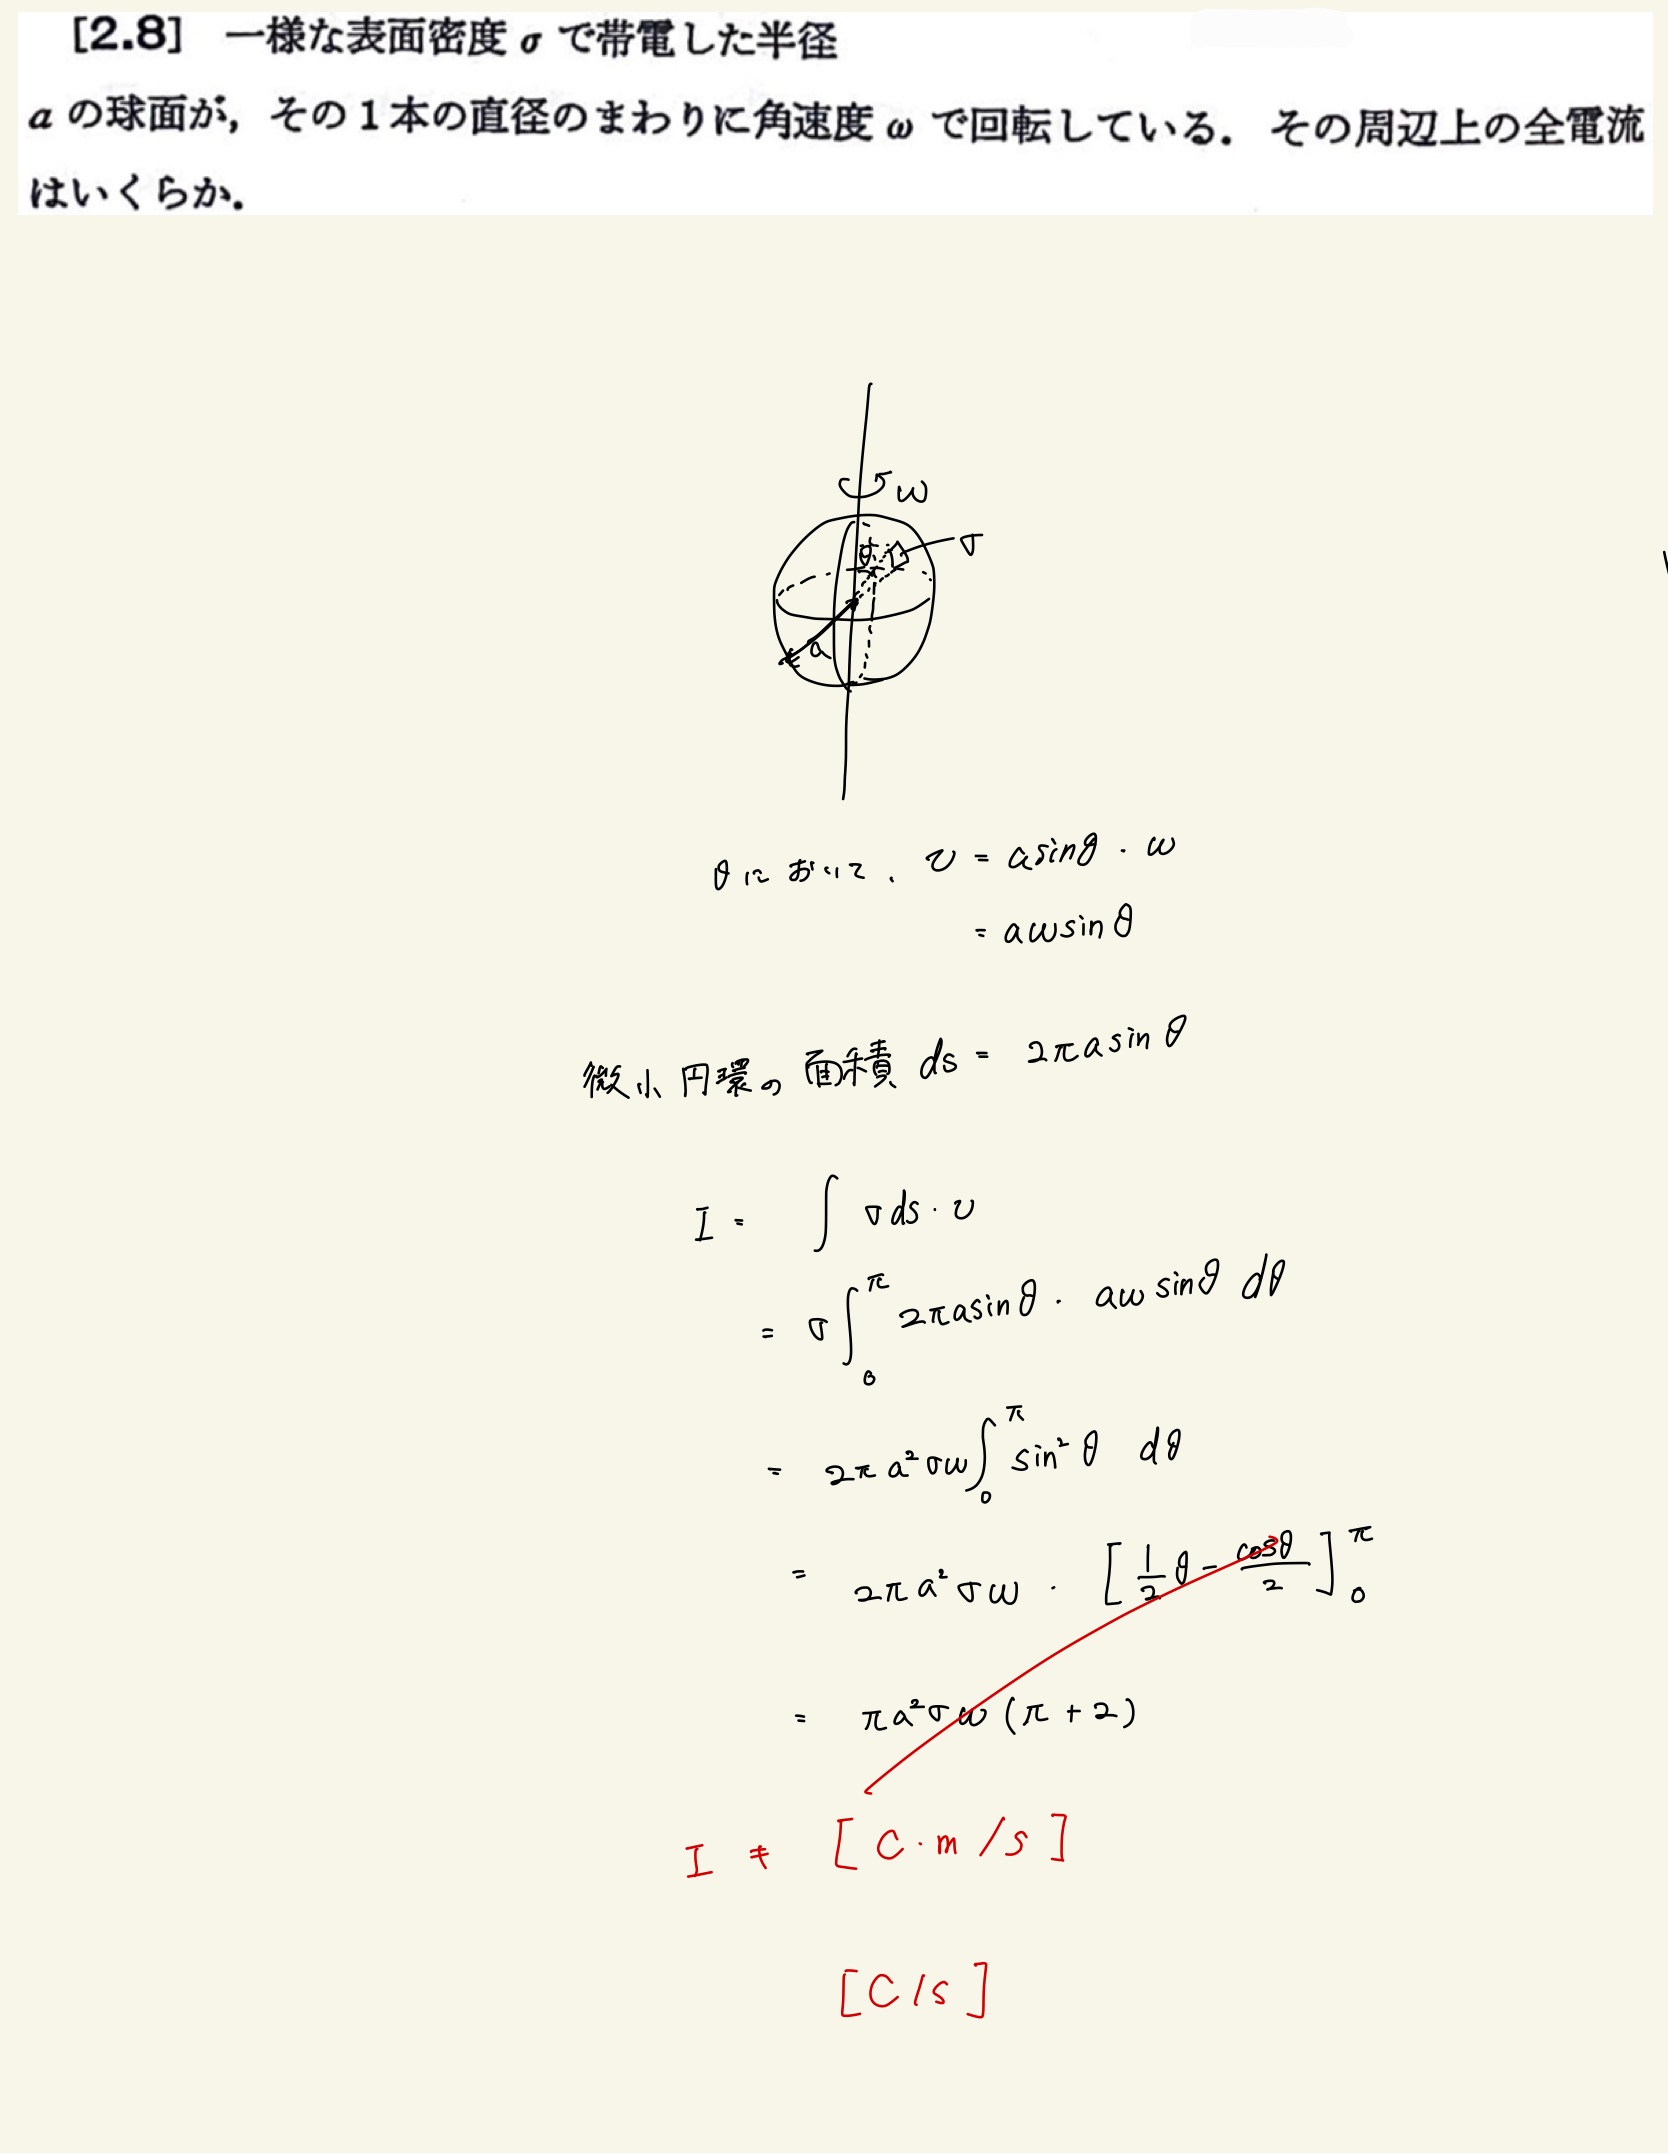 [2.8] 一様な表面密度 σ で帯電した半径
a の球面が，その1本の直径のまわりに角速度 ω で回転している． その周辺上の全電流
はいくらか．
ω
θ
σ
a
θにおいて、 v = a sinθ · ω
= aω sinθ
微小円環の面積 ds = 2πa sinθ
I = ∫ σ ds · v
= σ ∫₀^π 2πa sinθ · aω sinθ dθ
= 2πa²σω ∫₀^π sin²θ dθ
= 2πa²σω · [ 1/2 θ - cosθ/2 ]₀^π
= πa²σω (π + 2)
I ≠ [ C · m /s ]
[ C /s ]